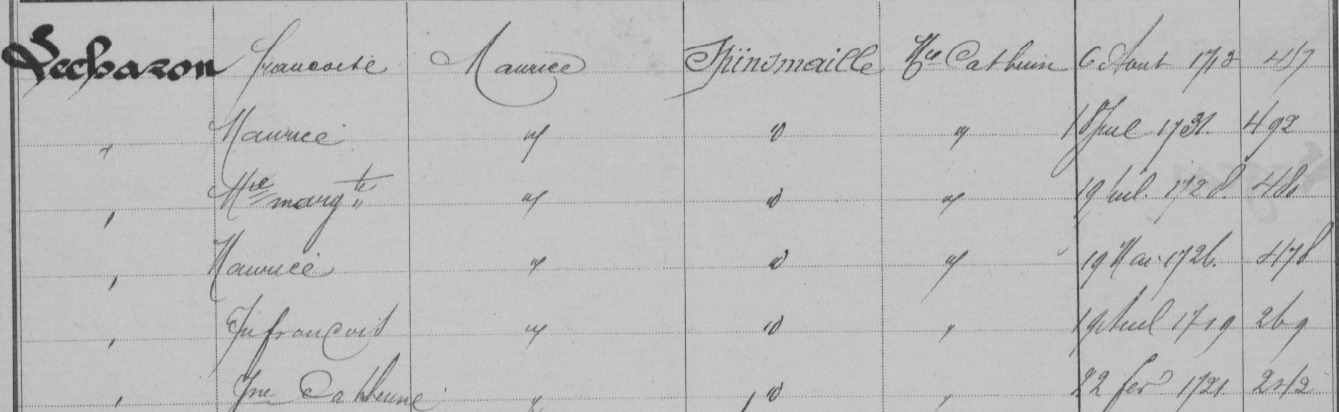 Lecharon françoise Maurice Spinsmaille Mie Catherin 6 Aout 1713 457
" Maurice " " " 18 Juil 1731. 492
" Mie margte " " " 19 Juil. 1728. 480
" Maurice " " " 19 Mai 1726. 478
" Jn francois " " " 19 Juil 1719 269
" Jne Catherine " " " 22 fev 1721 242